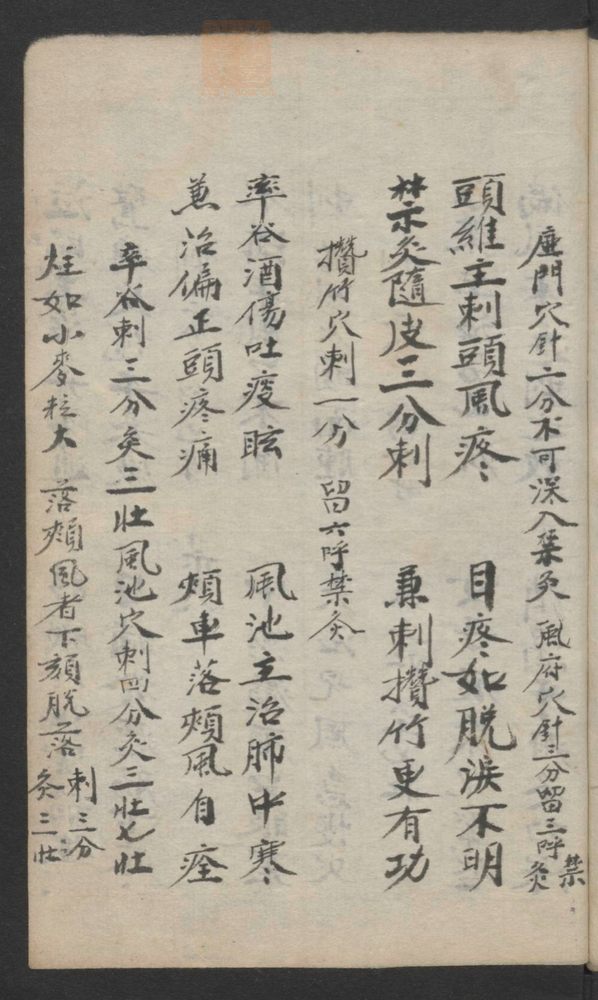 症門穴針二分不可深入禁灸 風府穴針三分留三呼禁灸
頭維主刺頭風疼 目疼如脫淚不明
禁灸隨皮三分刺 兼刺攢竹更有功
攢竹穴刺一分 留六呼禁灸
率谷酒傷吐痰眩 風池主治肺中寒
兼治偏正頭疼痛 頰車落頰風自痊
率谷刺三分灸三壯風池穴刺四分灸三壯七壯
炷如小麥粒大 落頰風者下頦脫落刺三分灸三壯